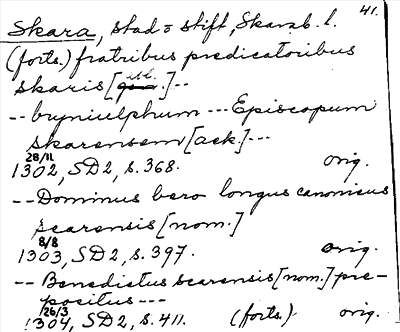 41.
Skara, stad o stift, Skarab. l.
(forts.) fratribus predicatoribus
skaris [abl.] --
-- bryniulphum --- Episcopum
skarensem [ack.] ---
28/11
1302, SD2, s. 368. orig.
-- Dominus bero longus canonicus
scarensis [nom.]
8/8
1303, SD2, s. 397. orig.
-- Benedictus scarensis [nom.] pre-
positus ---
26/3
1304, SD2, s. 411. (forts.) orig.